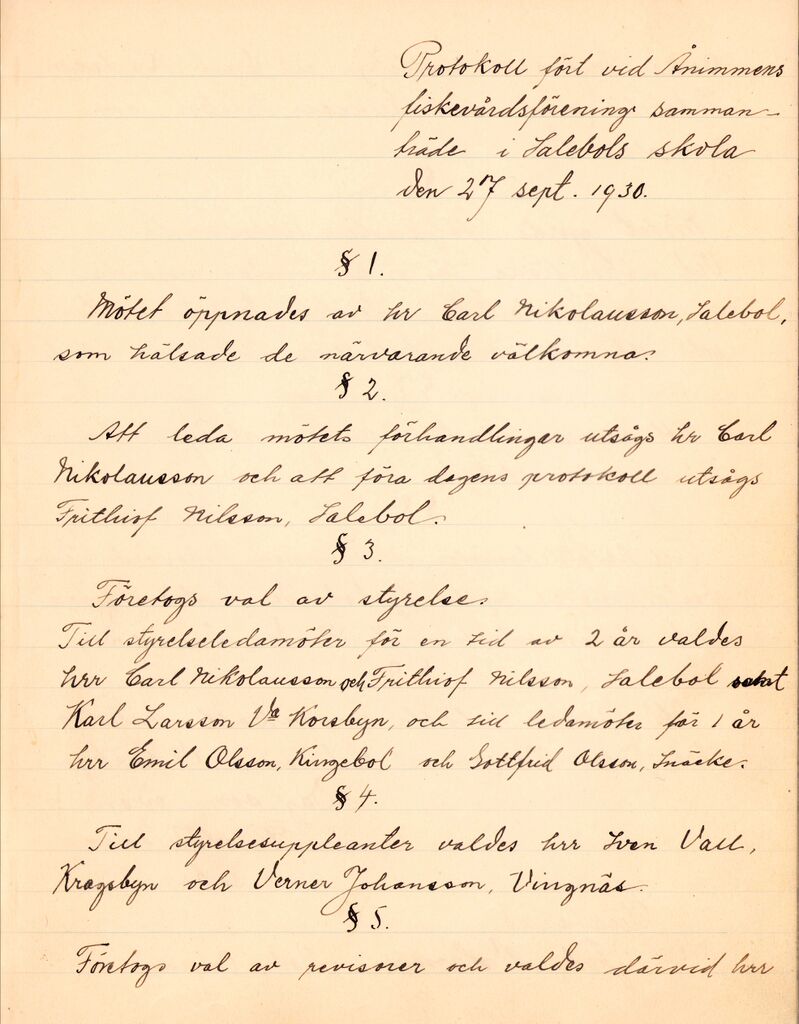 Protokoll fört vid Ånimmens
fiskevårdsförening samman-
träde i Salebols skola
den 27 sept. 1930.
§ 1.
Mötet öppnades av hr Carl Nikolausson, Salebol,
som hälsade de närvarande välkomna.
§ 2.
Att leda mötets förhandlingar utsågs hr Carl
Nikolausson och att föra dagens protokoll utsågs
Frithiof Nilsson, Salebol.
§ 3.
Företogs val av styrelse.
Till styrelseledamöter för en tid av 2 år valdes
hrr Carl Nikolausson och Frithiof Nilsson, Salebol samt
Karl Larsson Va Korsbyn, och till ledamöter för 1 år
hrr Emil Olsson, Kingebol och Gottfrid Olsson, Snäcke.
§ 4.
Till styrelsesuppleanter valdes hrr Sven Vall,
Kragsbyn och Verner Johansson, Vingnäs.
§ 5.
Företogs val av revisorer och valdes därvid hrr